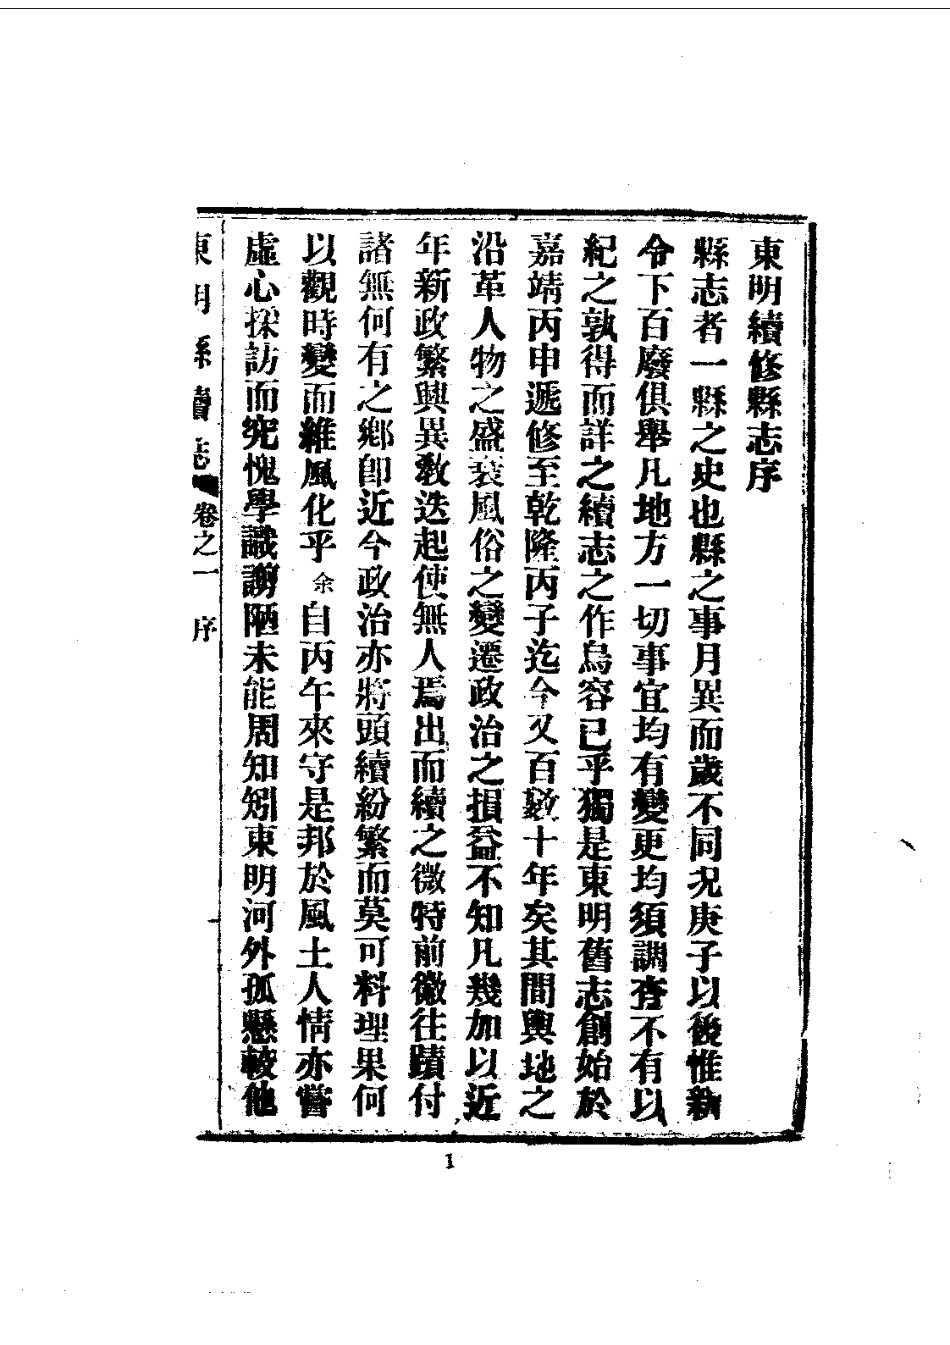 東明續修縣志序
縣志者一縣之史也縣之事月異而歲不同況庚子以後惟新
令下百廢俱舉凡地方一切事宜均有變更均須調查不有以
紀之孰得而詳之續志之作烏容已乎獨是東明舊志創始於
嘉靖丙申遞修至乾隆丙子迄今又百數十年矣其間輿地之
沿革人物之盛衰風俗之變遷政治之損益不知凡幾加以近
年新政繁興異教迭起使無人焉出而續之微特前徽往蹟付
諸無何有之鄉卽近今政治亦將頭續紛繁而莫可料理果何
以觀時變而維風化乎余自丙午來守是邦於風土人情亦嘗
虛心採訪而究愧學識謭陋未能周知矧東明河外孤懸較他
東明縣續志 卷之一 序
1